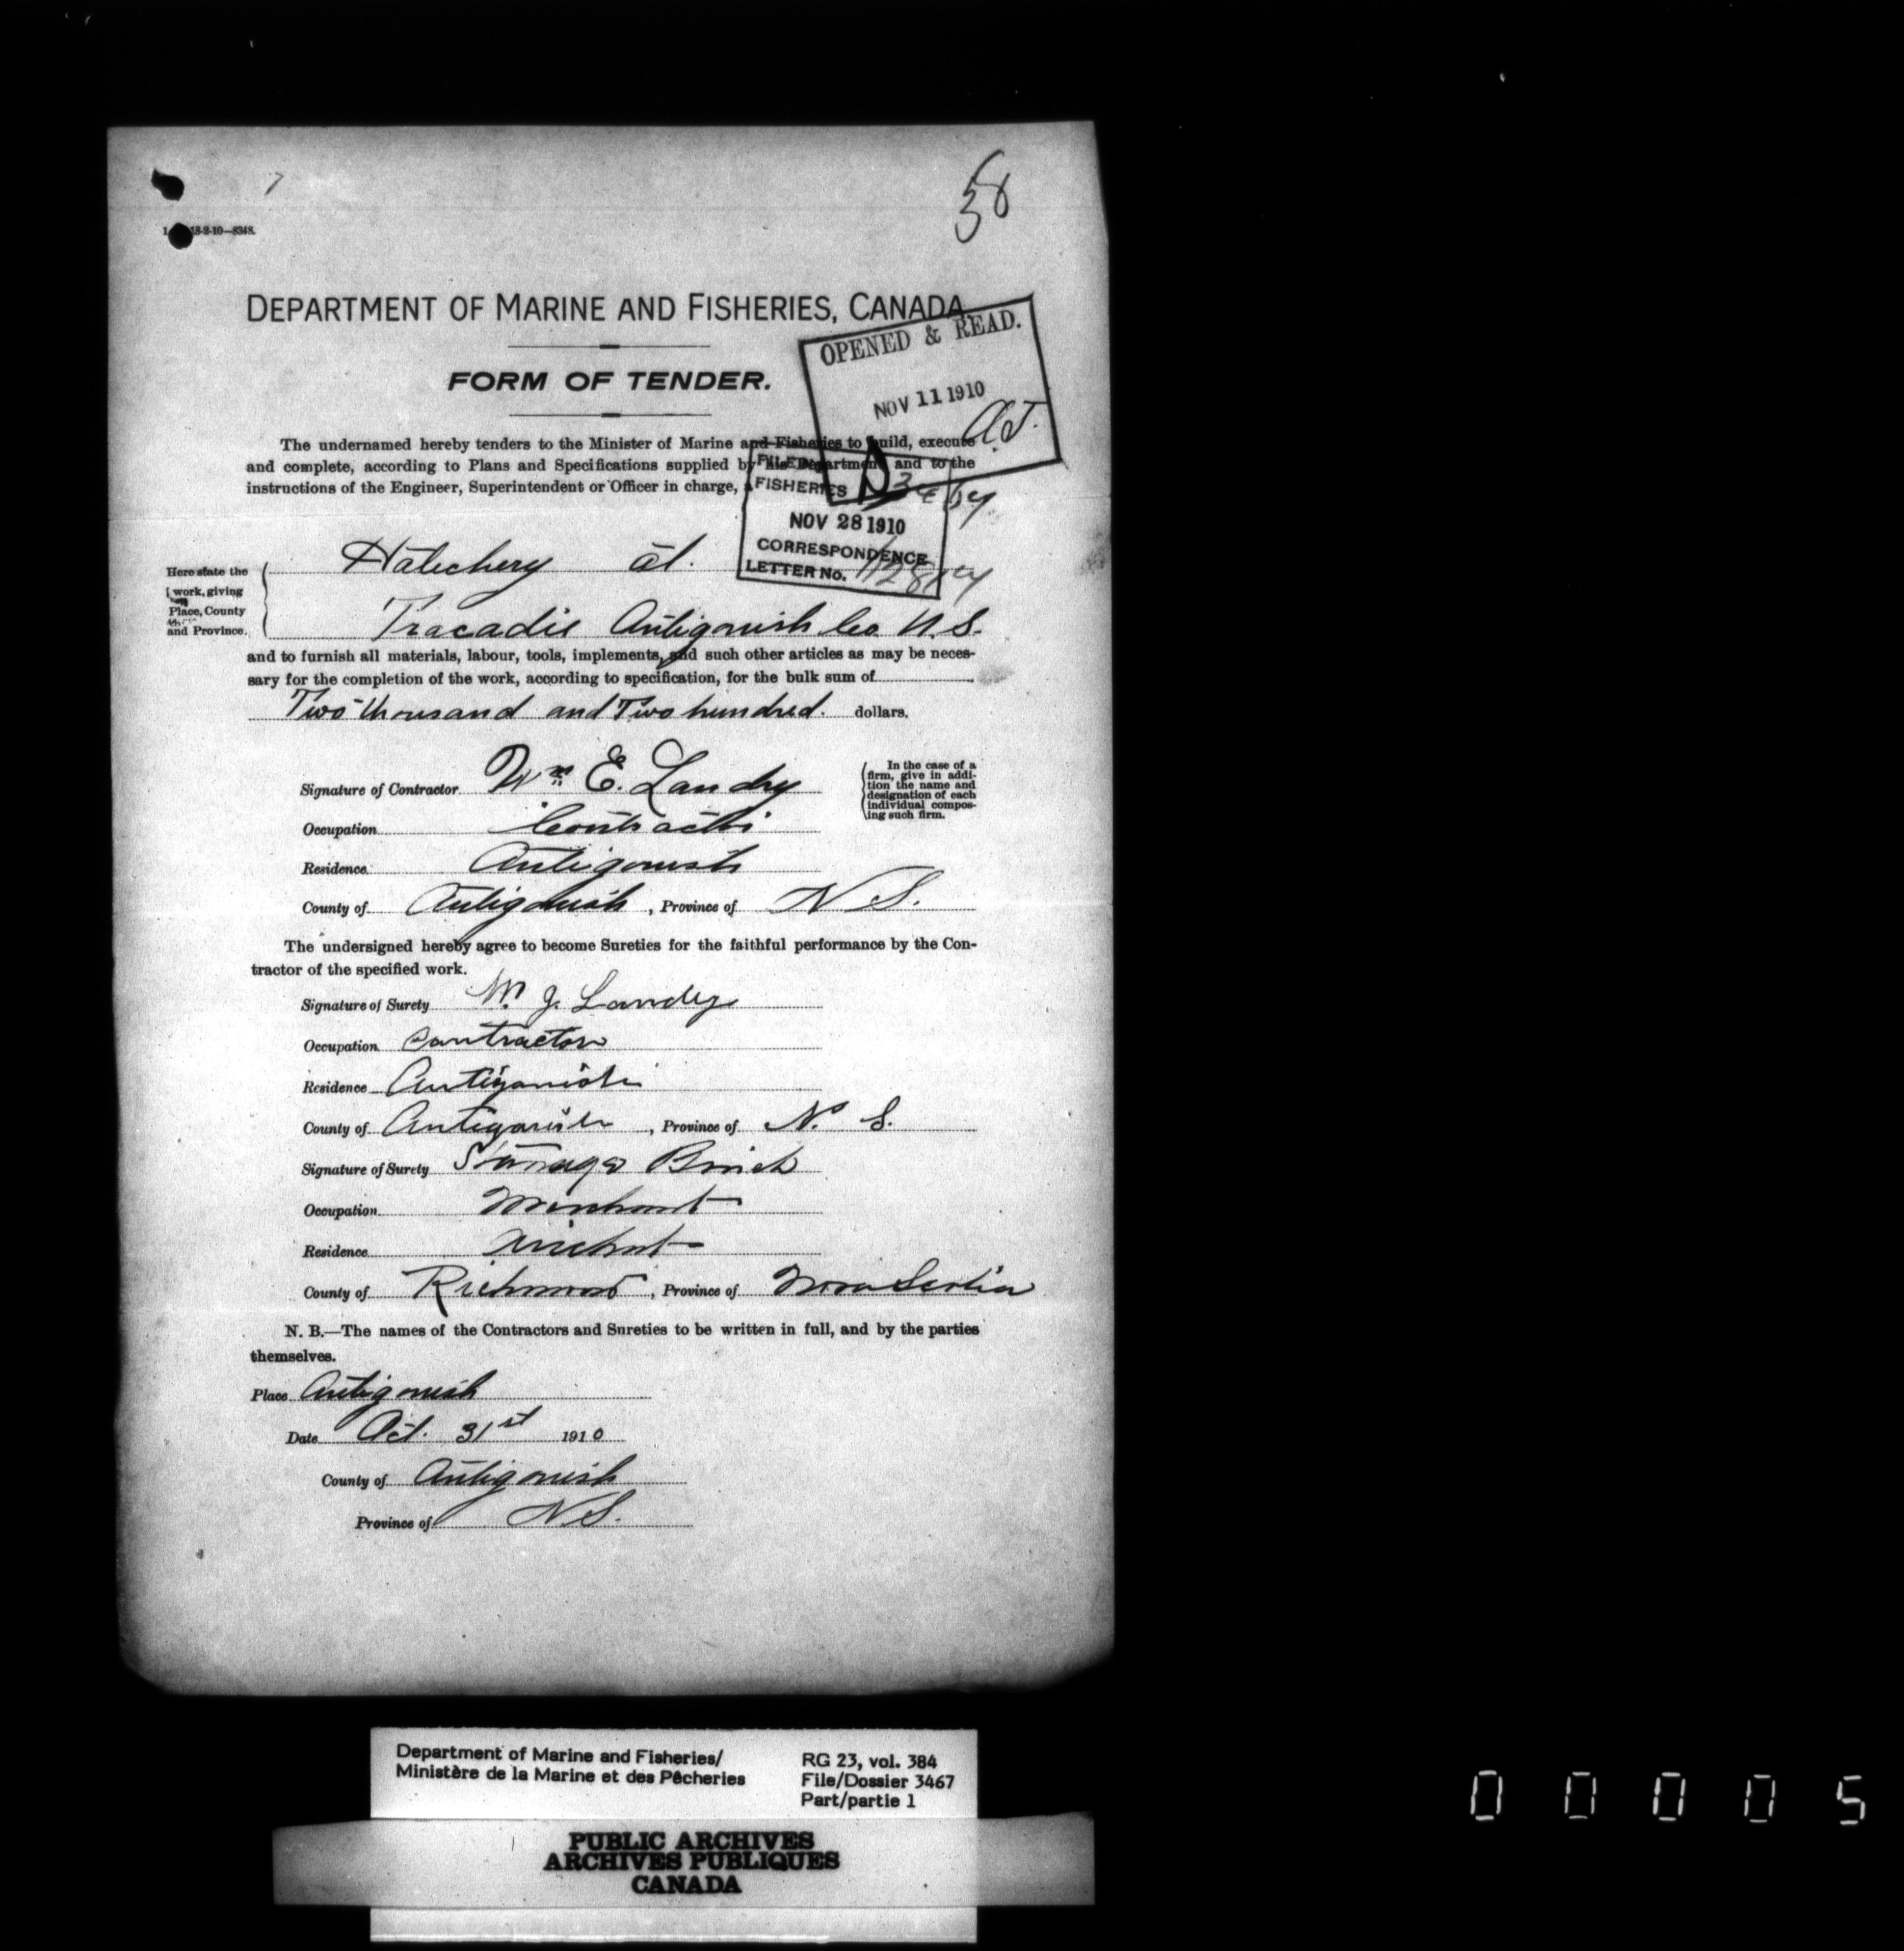 58
18-2-10—8348.
DEPARTMENT OF MARINE AND FISHERIES, CANADA
OPENED & READ.
NOV 11 1910
FORM OF TENDER.
The undernamed hereby tenders to the Minister of Marine and Fisheries to build, execute
and complete, according to Plans and Specifications supplied by his Department and to the
instructions of the Engineer, Superintendent or Officer in charge, a
FILE No.
FISHERIES 3467
NOV 28 1910
CORRESPONDENCE
LETTER No.
Here state the
work, giving
Place, County
and Province.
Hatechery at.
Tracadie Antigonish Co. N. S.
and to furnish all materials, labour, tools, implements, and such other articles as may be neces-
sary for the completion of the work, according to specification, for the bulk sum of
Two thousand and Two hundred. dollars.
Signature of Contractor Wm E. Landry
In the case of a
firm, give in addi-
tion the name and
designation of each
individual compos-
ing such firm.
Occupation Contractor
Residence Antigonish
County of Antigonish, Province of N S.
The undersigned hereby agree to become Sureties for the faithful performance by the Con-
tractor of the specified work.
Signature of Surety W. J. Landry
Occupation Contractor
Residence Antigonish
County of Antigonish, Province of N. S.
Signature of Surety
Occupation Merchant
Residence Arichat
County of Richmond, Province of Nova Scotia
N. B.—The names of the Contractors and Sureties to be written in full, and by the parties
themselves.
Place Antigonish
Date Oct. 31st 1910
County of Antigonish
Province of N S.
Department of Marine and Fisheries/
Ministère de la Marine et des Pêcheries
RG 23, vol. 384
File/Dossier 3467
Part/partie 1
PUBLIC ARCHIVES
ARCHIVES PUBLIQUES
CANADA
00005